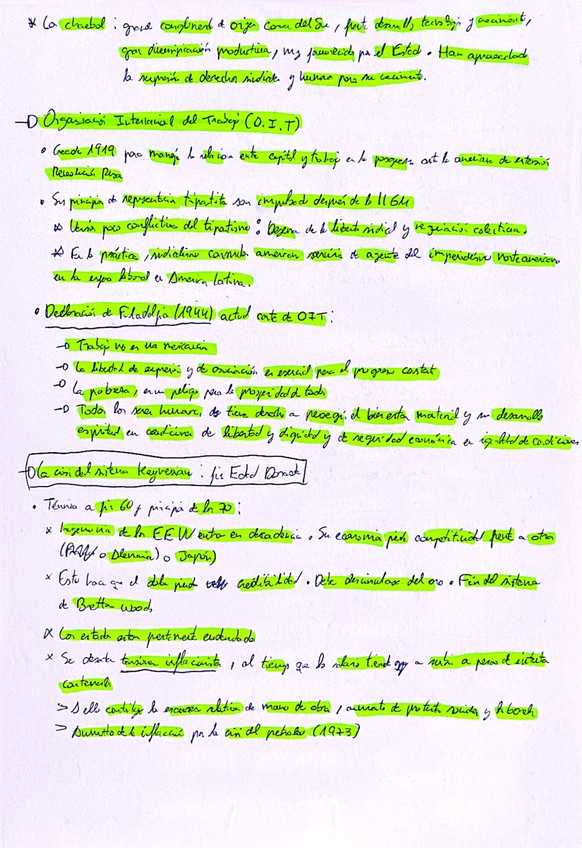 * La chaebol : grand conglomerat de origen Corea del Sur, fuerte desarrollo tecnologico y crecimiento,
gran diversificación productiva, muy favorecido por el Estado. Han aprovechado
la supresión de derechos sindicales y humanos para su crecimiento.
→ Organización Internacional del Trabajo (O.I.T)
• Creada 1919 para la relación entre capital y trabajo en los ante la amenaza de extensión
Revolución Rusa
• Su principio de representación tripartita son impulsado después de la II GM
* Versión poco conflictiva del tripartismo : Defensa de la libertad sindical y negociación colectiva.
* En la práctica, sindicalismo americano servirá de agente del imperialismo norteamericano
en la esfera laboral en América Latina.
• Declaración de Filadelfia (1944) actual carta de OIT:
→ Trabajo no es una mercancía
→ La libertad de expresión y de asociación es esencial para el progreso constante
→ La pobreza, es un peligro para la prosperidad de todos
→ Todos los seres humanos de tiene derecho a perseguir el bienestar material y su desarrollo
espiritual en condiciones de libertad y dignidad y de seguridad económica en igualdad de condiciones
→ La crisis del sistema Keynesiano : fin Edad Dorada
• Término a fin 60 y principio de los 70 :
x hegemonia de los EEUU entra en decadencia . Su economía pierde competitividad frente a otra
( o Alemania) o Japón)
x Esto hace que el dólar pierda credibilidad . Debe desvincularse del oro . Fin del sistema
de Bretton Woods
x Los estados estan endeudado
x Se desata tensiones inflacionista, al tiempo que los salarios tienden a subir a pesar de
contenerlo
> A ello contribuye la escasez relativa de mano de obra , aumento de protesta sociales y laborales
> Aumento de la inflación por la crisis del petroleo (1973)